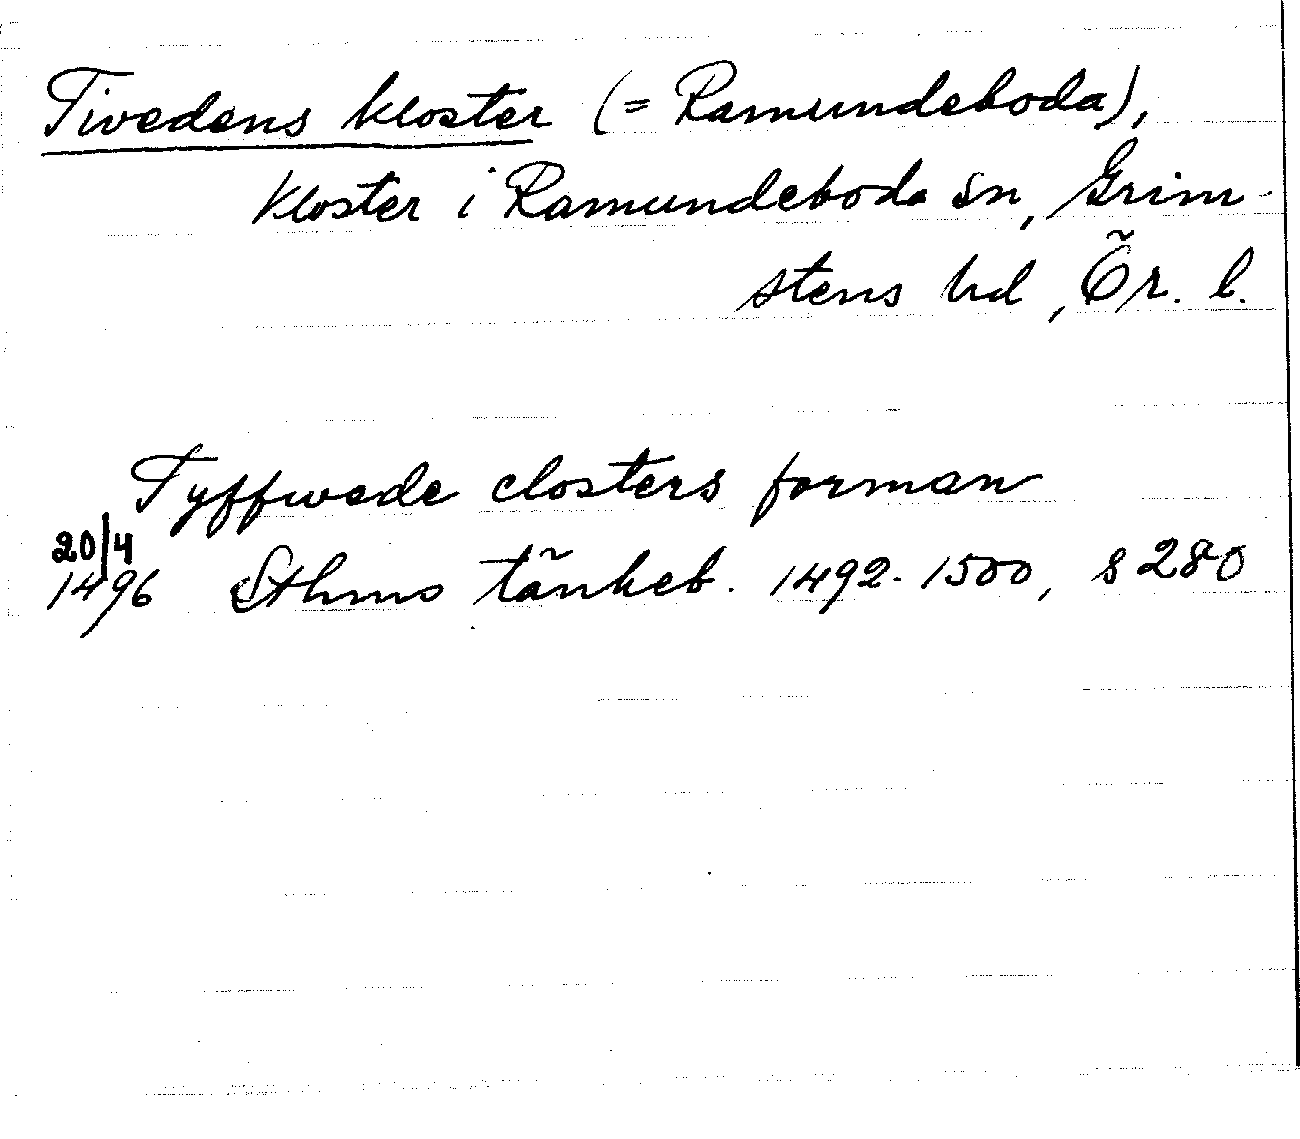 Tivedens kloster (= Ramundeboda),
kloster i Ramundeboda sn, Grim-
stens hd, Ör. l.
Tyffwede closters forman
20/4
1496 Sthms tänkeb. 1492-1500, s 280